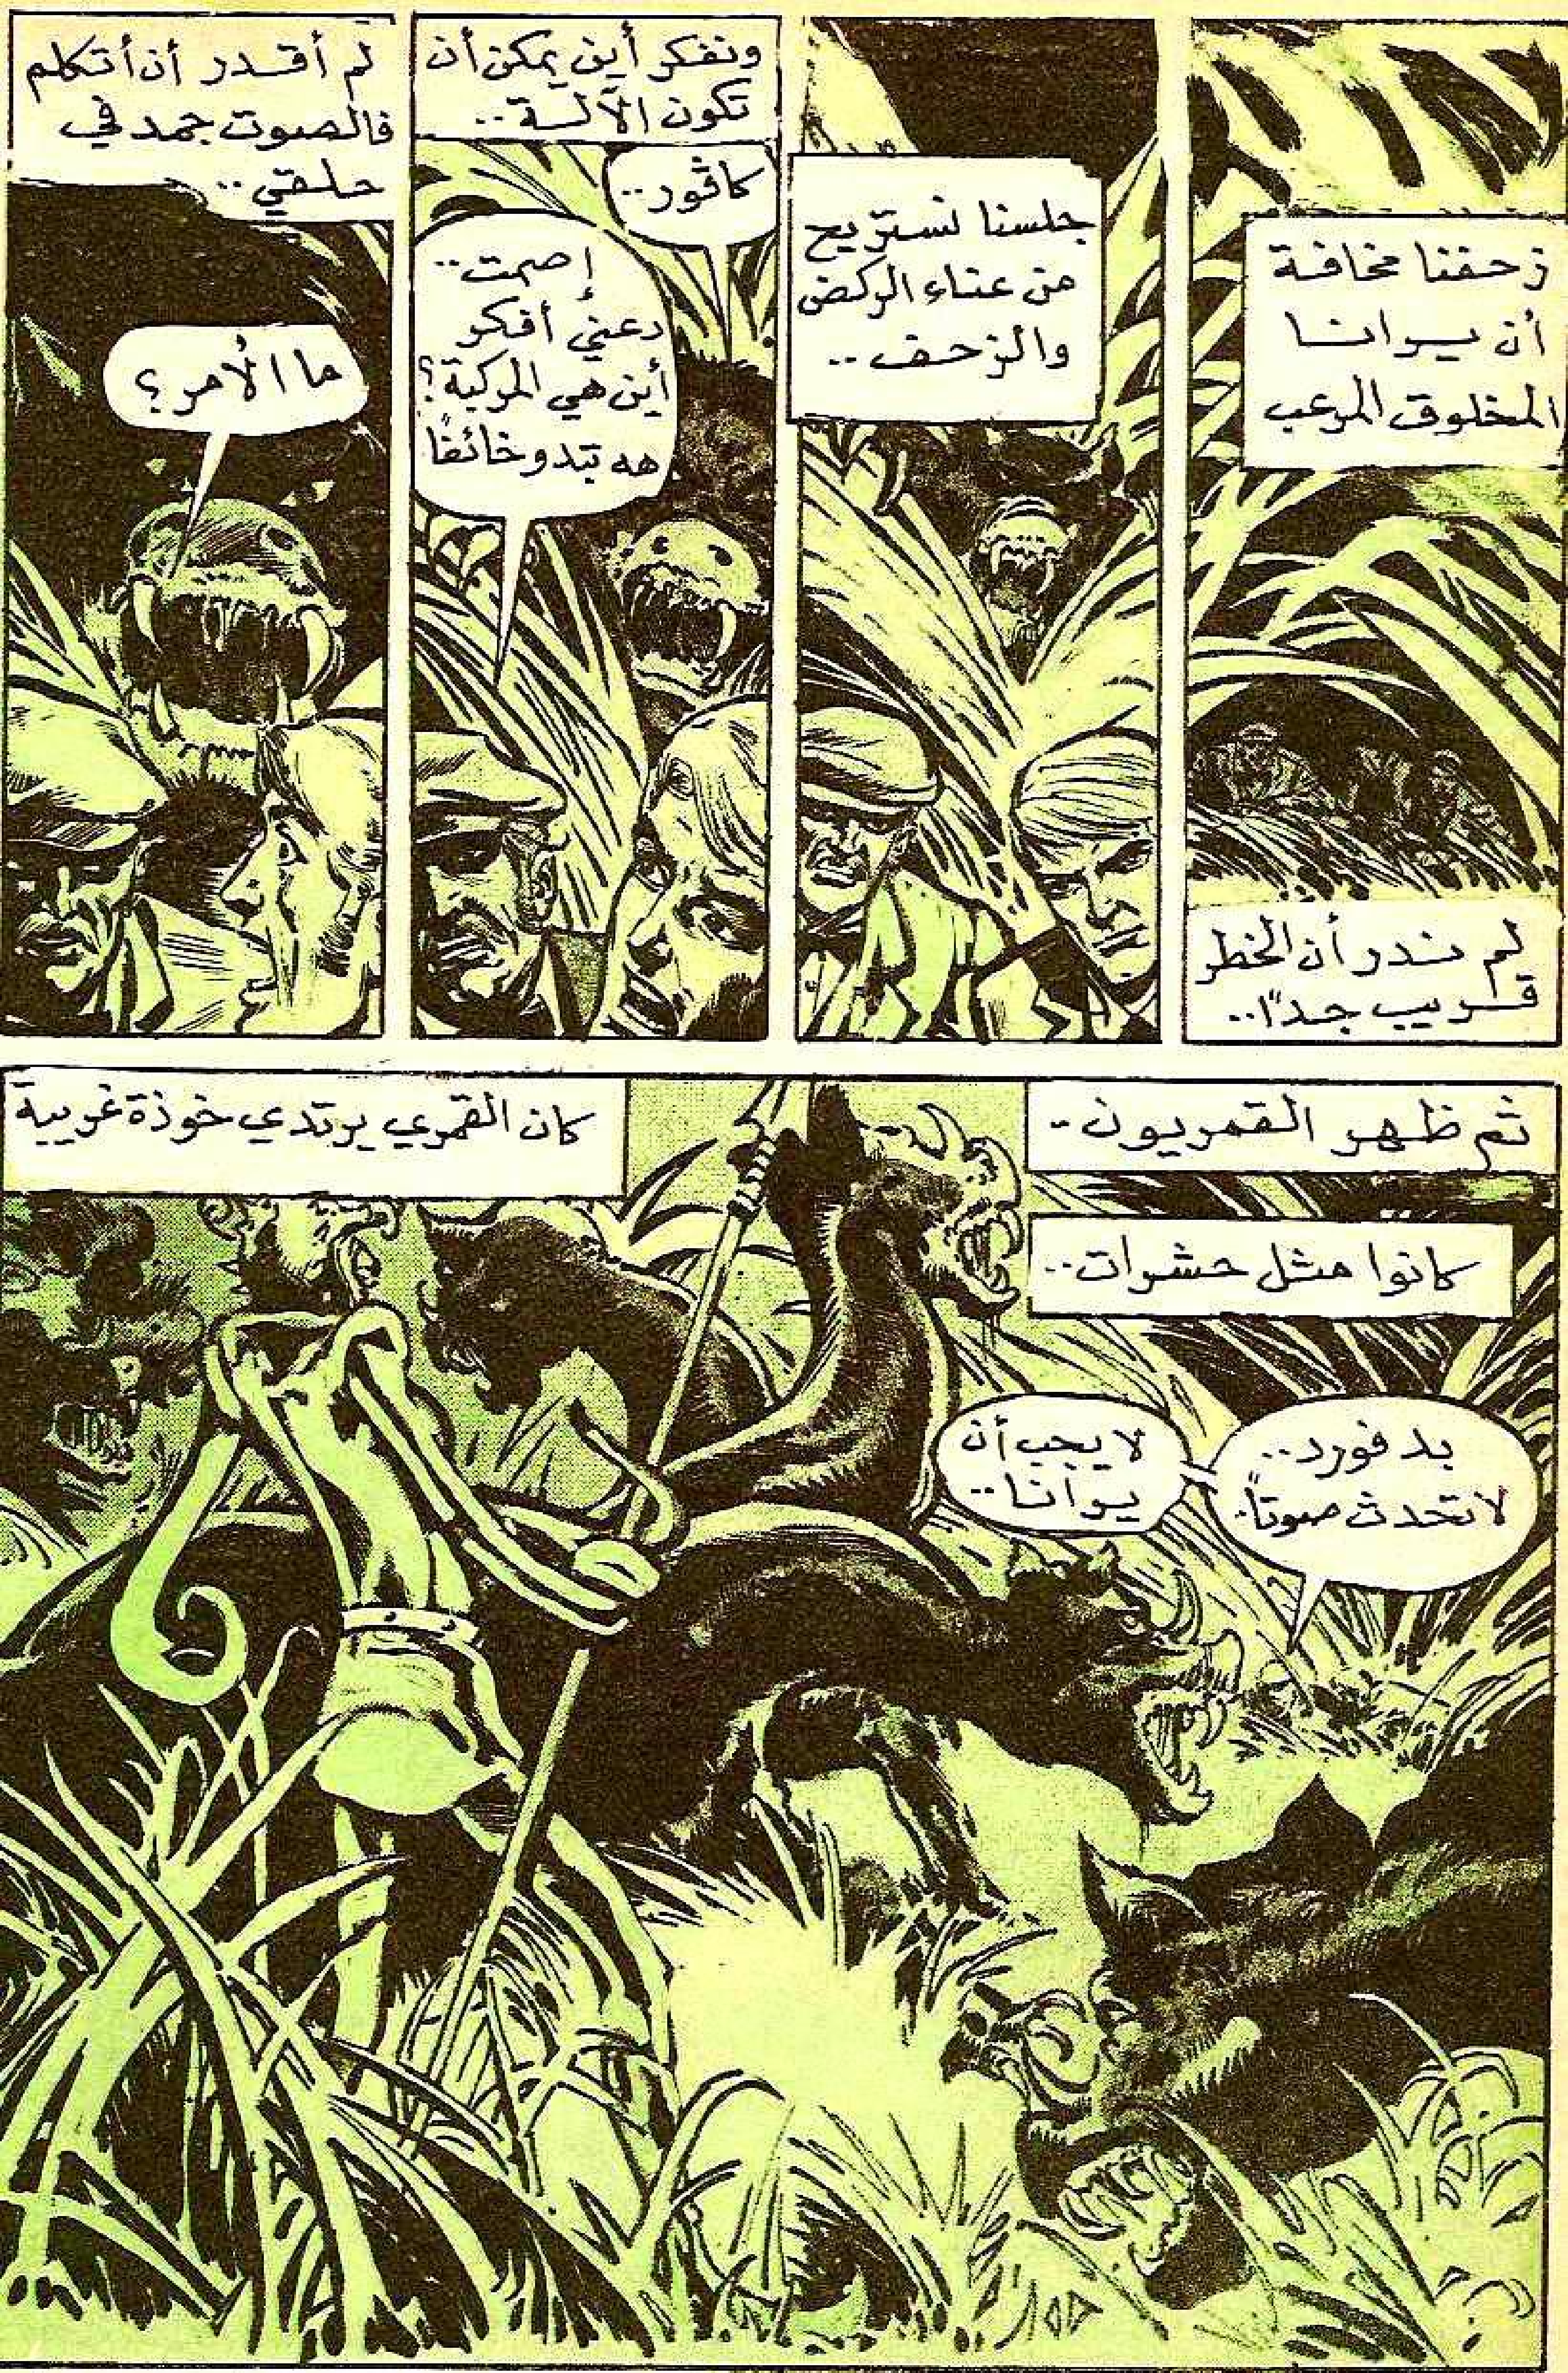 زحفنا مخافة
أن يرانا
المخلوق المرعب
لم ندر أن الخطر
قريب جداً..
جلسنا نستريح
من عناء الركض
والزحف..
ونفكر أين يمكن أن
تكون الآلة..
كاڤور..
إصمت..
دعني أفكر
أين هي المركبة؟
هه تبدو خائفاً
لم أقدر أن أتكلم
فالصوت جمد في
حلقي..
ما الأمر؟
ثم ظهر القمريون..
كانوا مثل حشرات..
كان القمري يرتدي خوذة غريبة
بدفورد..
لا تحدث صوتاً.
لا يجب أن
يرانا..